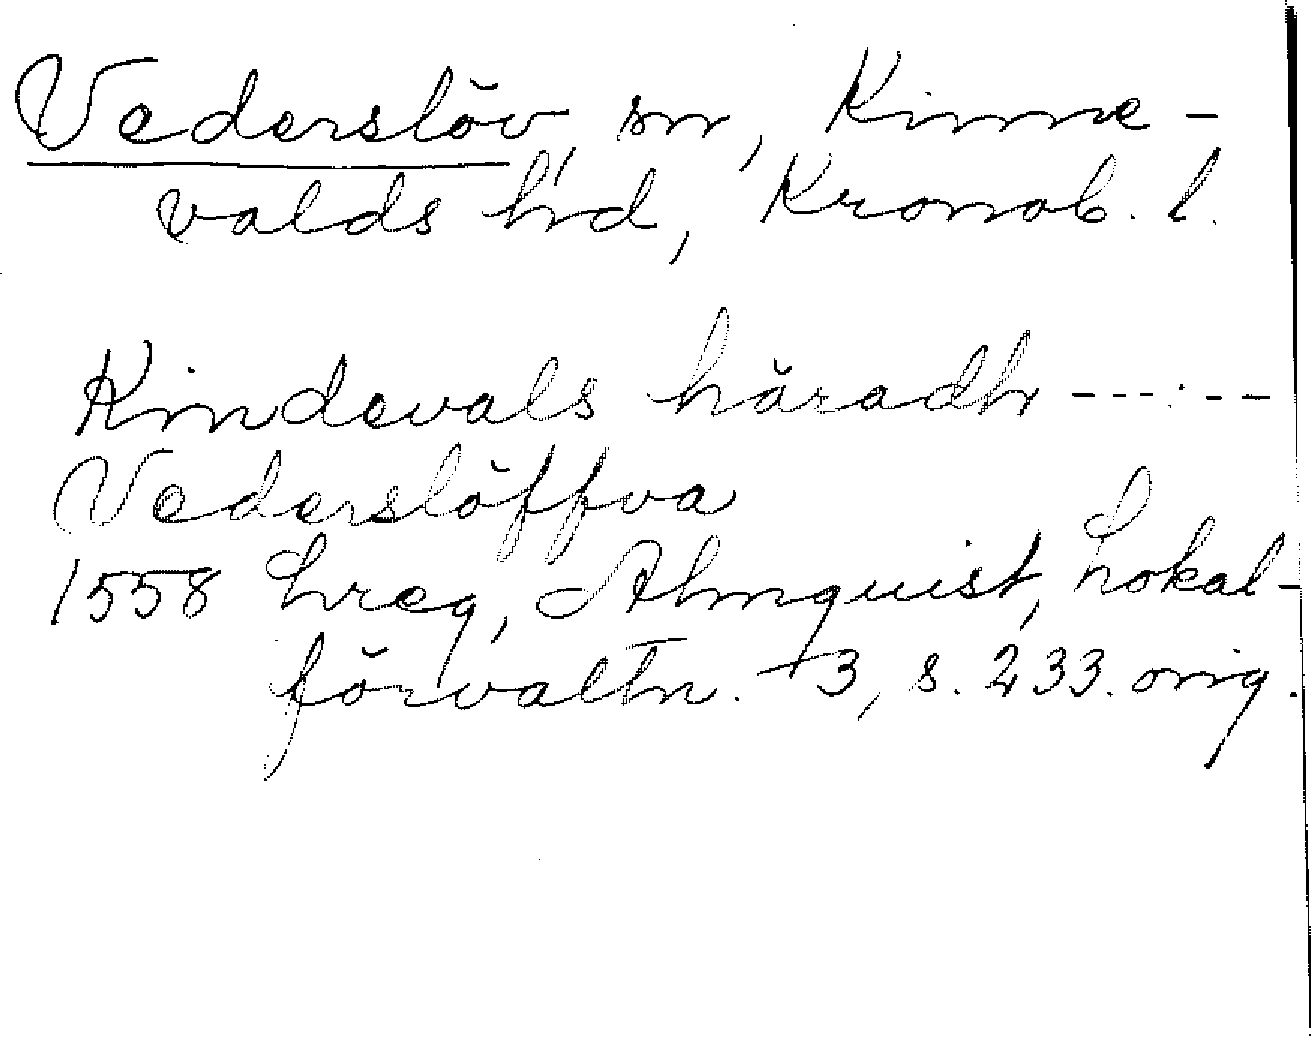 Vederslöv, sn, Kinne-
valds hd, Kronob. l.
Kindevals häradh ------
Vederslöffva
1558 Lreg, Almquist, Lokal-
förvaltn. +3, s. 233. orig.